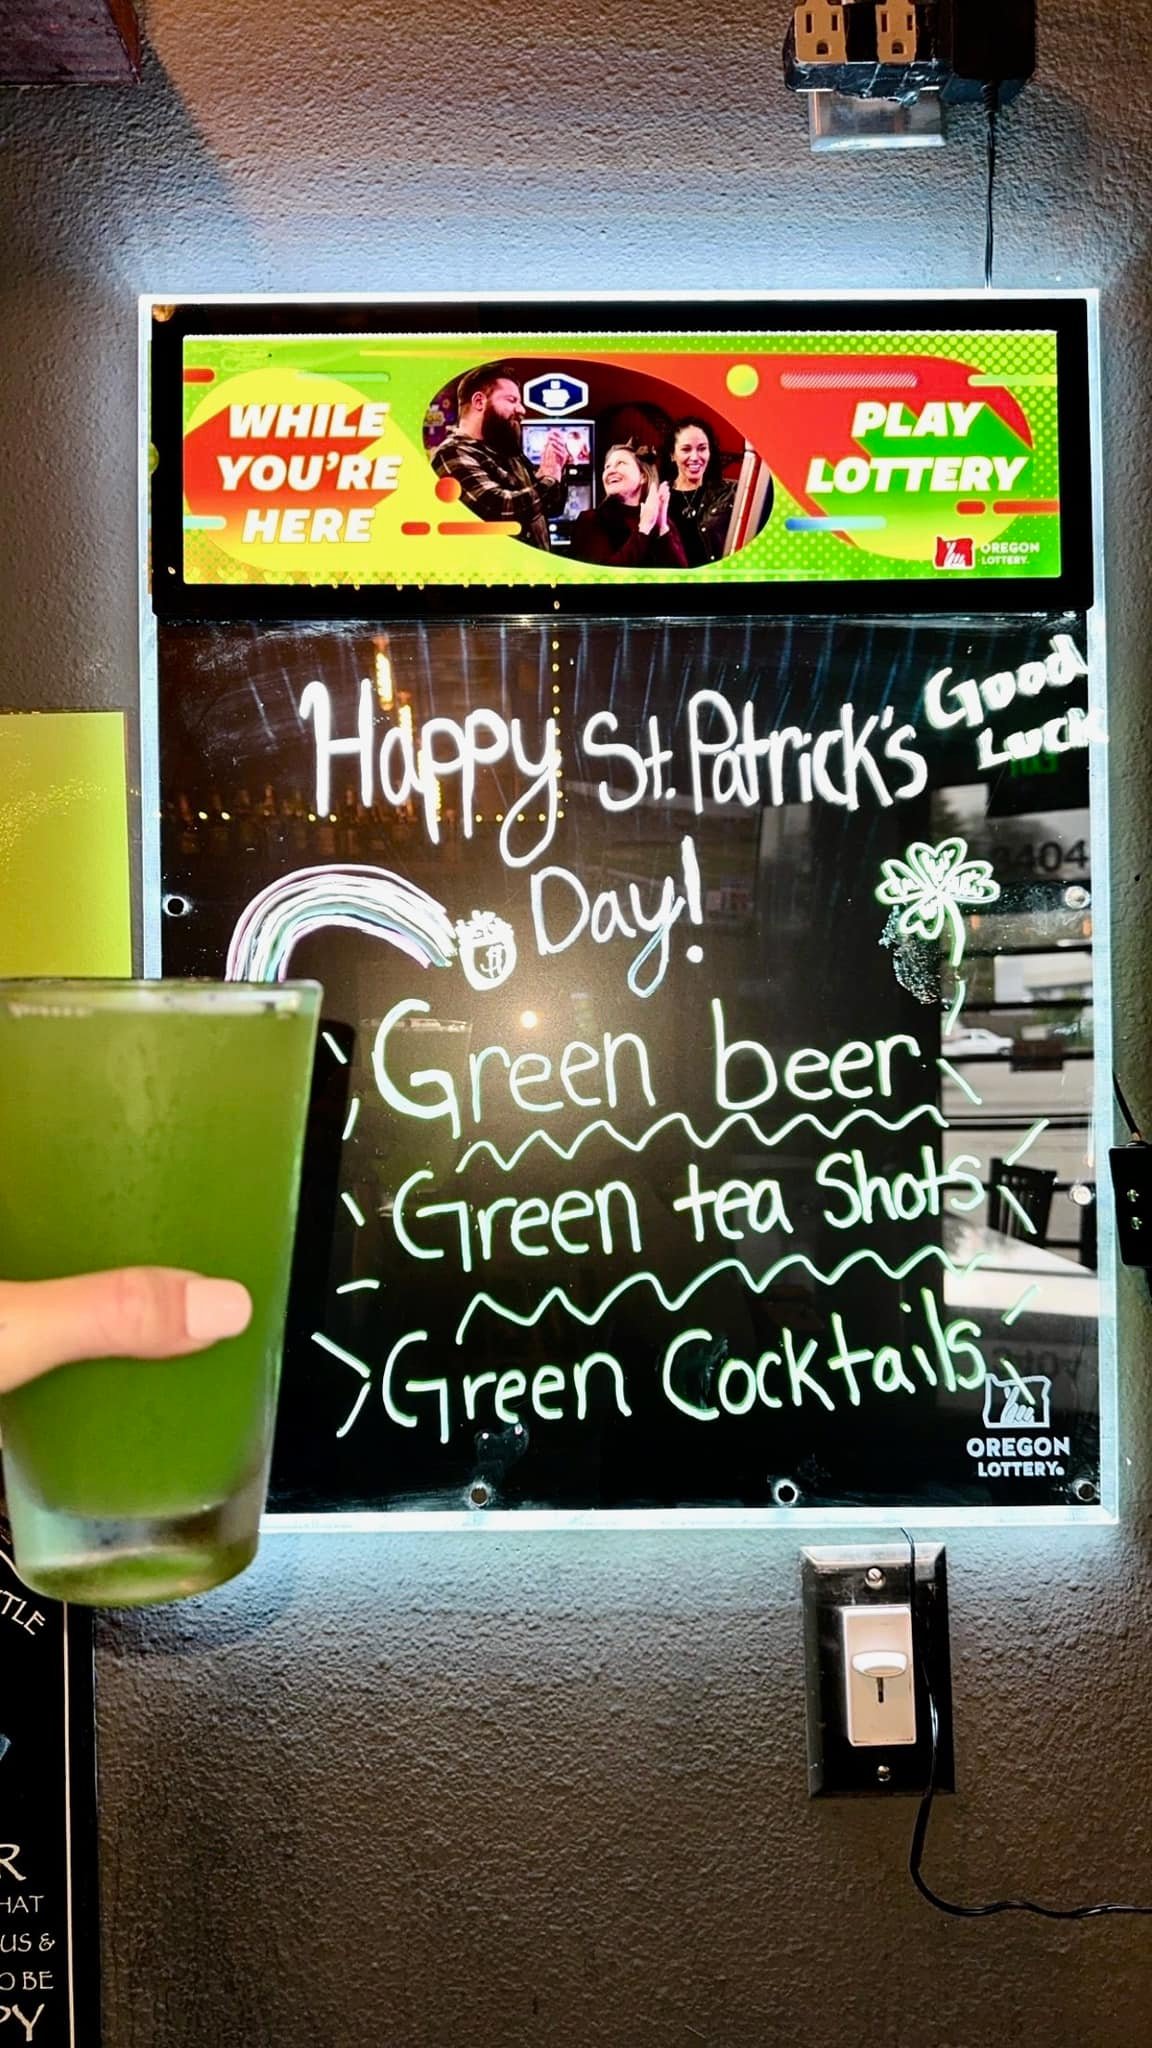 WHILE
YOU'RE
HERE
PLAY
LOTTERY
OREGON
LOTTERY.
Good
Luck
Happy St. Patrick's
Day!
3404
Green beer
Green tea Shots
Green Cocktails
OREGON
LOTTERY®
TLE
R
HAT
US &
O BE
PY